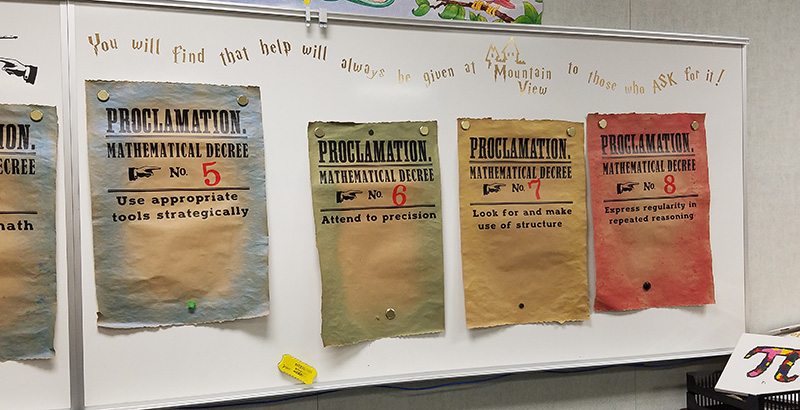 You will find that help will always be given at Mountain View to those who ASK for it!
ION.
REE
math
PROCLAMATION.
MATHEMATICAL DECREE
No. 5
Use appropriate
tools strategically
PROCLAMATION.
MATHEMATICAL DECREE
No. 6
Attend to precision
PROCLAMATION.
MATHEMATICAL DECREE
No. 7
Look for and make
use of structure
PROCLAMATION.
MATHEMATICAL DECREE
No. 8
Express regularity in
repeated reasoning
π